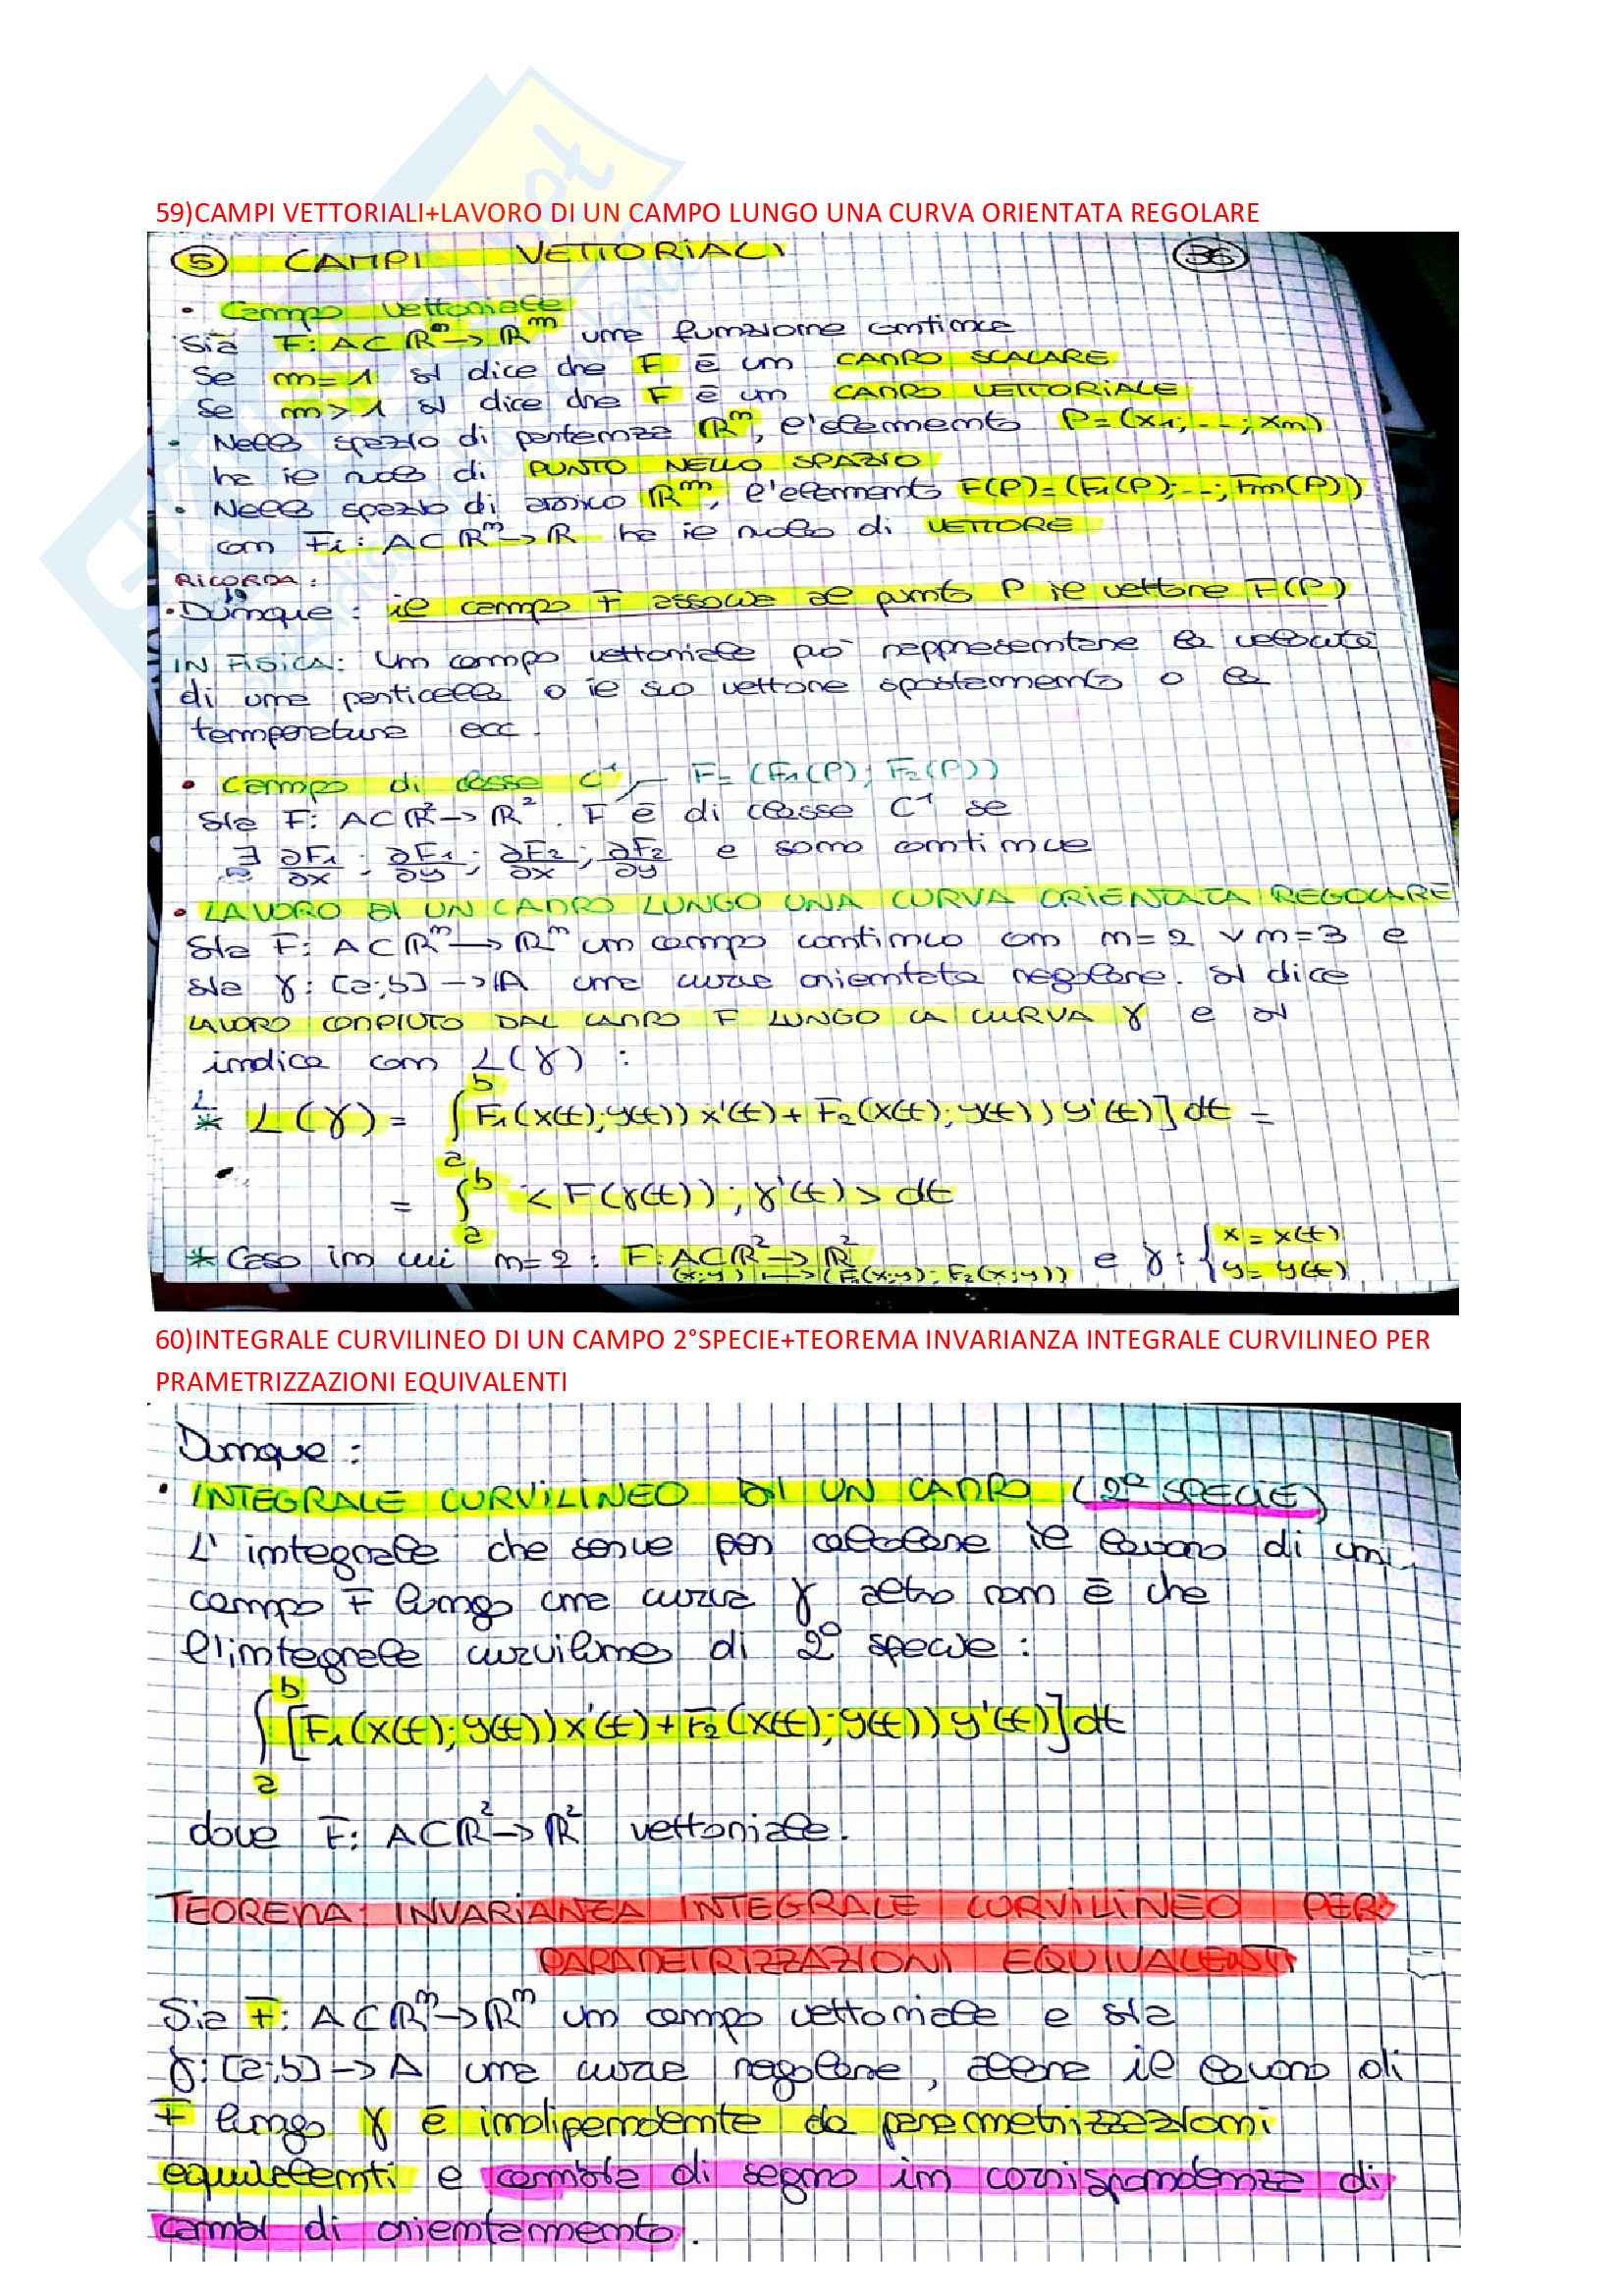 59)CAMPI VETTORIALI+LAVORO DI UN CAMPO LUNGO UNA CURVA ORIENTATA REGOLARE
5 CAMPI VETTORIALI 36
• Campo vettoriale
Sia F: A⊂ℝⁿ→ℝᵐ una funzione continua
Se m=1 si dice che F è un CAMPO SCALARE
Se m>1 si dice che F è un CAMPO VETTORIALE
• Nello spazio di partenza ℝⁿ, l'elemento P=(x1;...;xn)
ha il ruolo di PUNTO NELLO SPAZIO
• Nello spazio di arrivo ℝᵐ, l'elemento F(P)=(F1(P);...;Fm(P))
con Fi: A⊂ℝⁿ→ℝ ha il ruolo di VETTORE
RICORDA:
• Dunque: il campo F associa al punto P il vettore F(P)
IN FISICA: un campo vettoriale può rappresentare la velocità
di una particella o il suo vettore spostamento o la
temperatura ecc.
• Campo di classe C¹ F=(F1(P); F2(P))
Sia F: A⊂ℝ²→ℝ². F è di classe C¹ se
∃ ∂F1/∂x ; ∂F1/∂y ; ∂F2/∂x ; ∂F2/∂y e sono continue
• LAVORO DI UN CAMPO LUNGO UNA CURVA ORIENTATA REGOLARE
Sia F: A⊂ℝⁿ→ℝⁿ un campo continuo con n=2 ∨ n=3 e
sia γ: [a;b]→A una curva orientata regolare. Si dice
LAVORO COMPIUTO DAL CAMPO F LUNGO LA CURVA γ e si
indica con L(γ) :
* L(γ) = ∫ₐᵇ F1(x(t);y(t)) x'(t) + F2(x(t);y(t)) y'(t)] dt =
= ∫ₐᵇ <F(γ(t)); γ'(t)> dt
* Caso in cui n=2 : F: A⊂ℝ²→ℝ² e γ: { x=x(t)
(x;y)↦(F1(x;y);F2(x;y)) y=y(t)
60)INTEGRALE CURVILINEO DI UN CAMPO 2°SPECIE+TEOREMA INVARIANZA INTEGRALE CURVILINEO PER
PRAMETRIZZAZIONI EQUIVALENTI
Dunque :
• INTEGRALE CURVILINEO DI UN CAMPO (2° SPECIE)
L'integrale che serve per calcolare il lavoro di un
campo F lungo una curva γ altro non è che
l'integrale curvilineo di 2° specie :
∫ₐᵇ [F1(x(t);y(t))x'(t)+F2(x(t);y(t))y'(t)]dt
dove F: A⊂ℝ²→ℝ² vettoriale.
TEOREMA: INVARIANZA INTEGRALE CURVILINEO PER
PARAMETRIZZAZIONI EQUIVALENTI
Sia F: A⊂ℝⁿ→ℝⁿ un campo vettoriale e sia
γ: [a;b]→A una curva regolare, allora il lavoro di
F lungo γ è indipendente da parametrizzazioni
equivalenti e cambia di segno in corrispondenza di
cambi di orientamento.